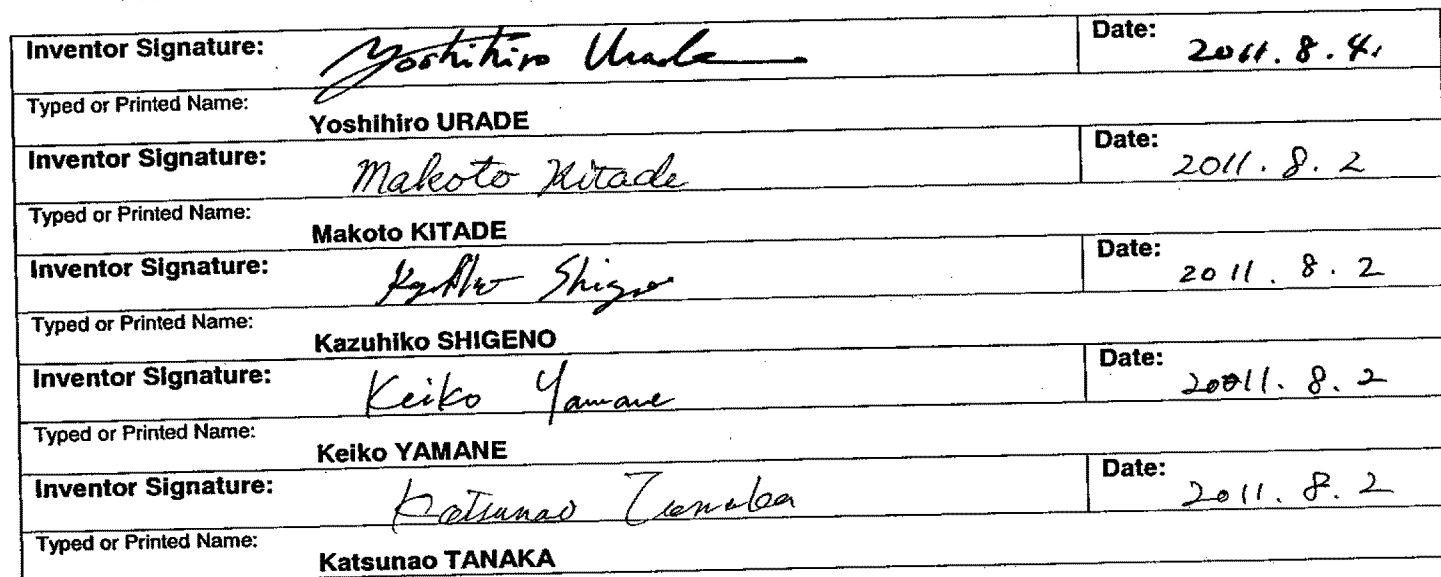 Inventor Signature: Yoshihiro Urade Date: 2011. 8. 4.
Typed or Printed Name: Yoshihiro URADE
Inventor Signature: Makoto Kitade Date: 2011. 8. 2
Typed or Printed Name: Makoto KITADE
Inventor Signature: Shigeno Date: 2011. 8. 2
Typed or Printed Name: Kazuhiko SHIGENO
Inventor Signature: Keiko Yamane Date: 2011. 8. 2
Typed or Printed Name: Keiko YAMANE
Inventor Signature: Katsunao Tanaka Date: 2011. 8. 2
Typed or Printed Name: Katsunao TANAKA